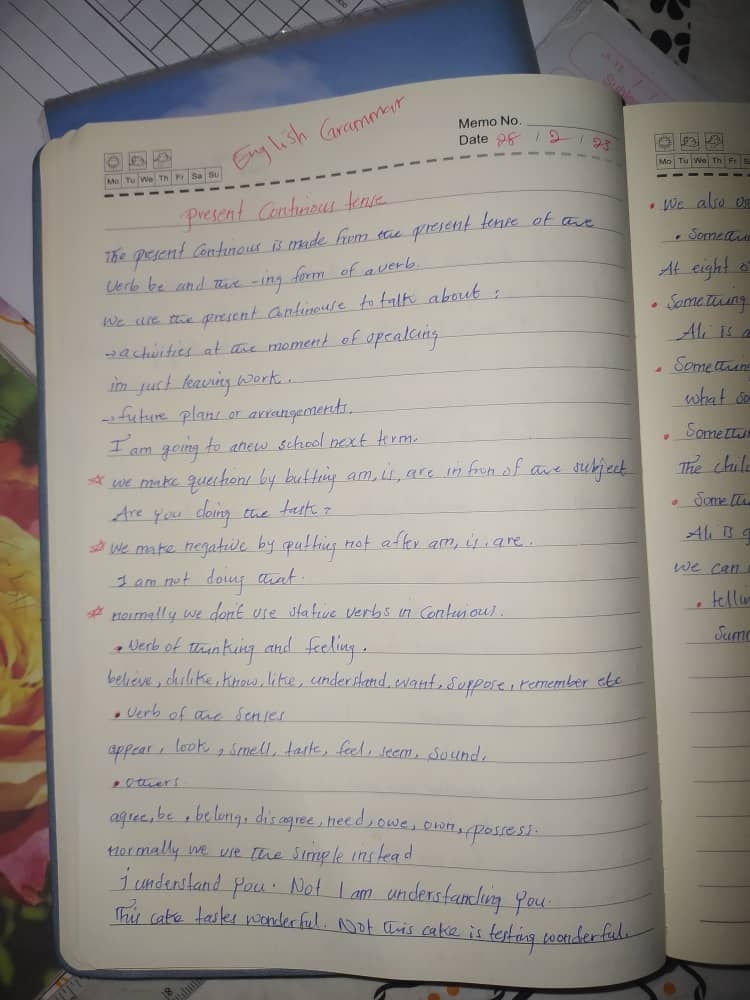 English Grammar
Memo No.
Date 28 / 2 / 23
Mo Tu We Th Fr Sa Su
present Continous tense
The present Continous is made from the present tense of the
verb be and the -ing form of a verb.
We use the present Continouse to talk about :
→ activities at the moment of speaking
im just leaving work.
→ future plans or arrangements.
I am going to anew school next term.
☆ we make questions by butting am, is, are in fron of the subject
Are you doing the task?
☆ We make negative by putting not after am, is, are.
I am not doing that.
☆ normally we don't use stative verbs in Continious.
• Verb of thinking and feeling.
believe, dislike, know, like, understand, want, suppose, remember etc
• Verb of the senses
appear, look, smell, taste, feel, seem, sound.
• others
agree, be, belong, disagree, need, owe, own, possess.
normally we use the simple instead
i understand you. Not I am understanding you.
This cake tastes wonderful. Not this cake is testing wonderful.
Mo Tu We Th Fr
• We also
•
At eight
• Something
Ali is
•
what
•
The
•
Ali is
we can
•